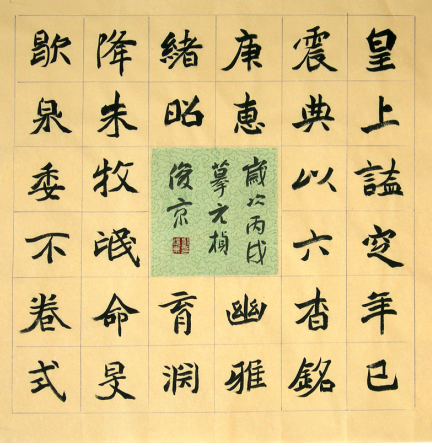 皇上謚窆年已
震典以六杳銘
庚惠幽雅
緒昭育淵
降未牧氓命旻
歇泉委不卷式
歲次丙戌
摹元楨
俊京